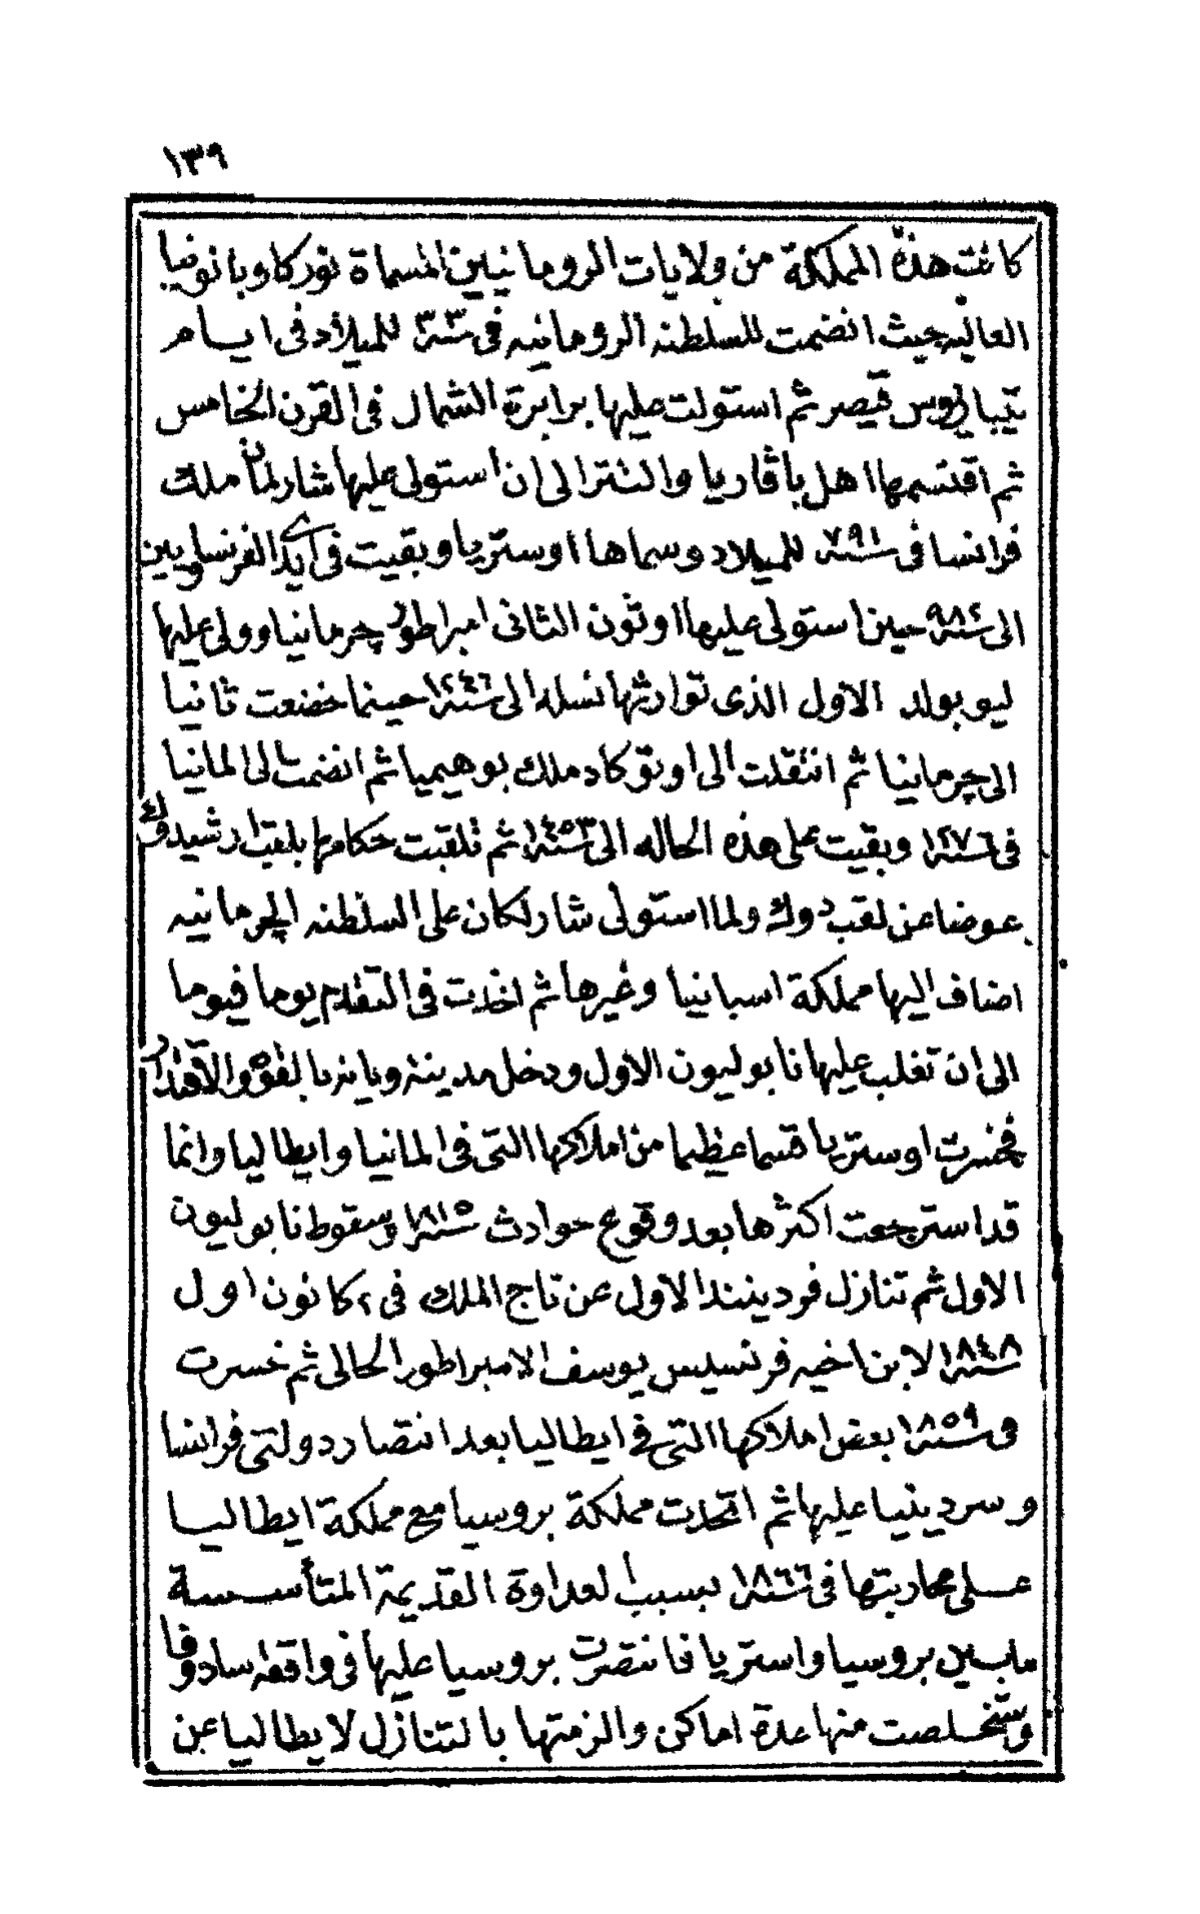 ١٣٩
كانت هذه المملكة من ولايات الرومانيين المسماة نوركا وبانونيا
العاليه حيث انضمت للسلطنه الرومانيه في سنة ٣٣ للميلاد في ايام
تيباريوس قيصر ثم استولت عليها برابرة الشمال في القرن الخامس
ثم اقتسمها اهل باڤاريا والتترا لى ان استولى عليها شارلمان ملك
فرانسا في سنة ٧٩١ للميلاد وسماها اوستريا وبقيت في ايدي الفرنساويين
الى سنة ٩٨٤ حين استولى عليها اوثون الثانى امبراطور چرمانيا وولى عليها
ليوبولد الاول الذى توارثها نسله الى سنة ١٢٤٦ حينما خضعت ثانيا
الى چرمانيا ثم انتقلت الى اوتوكاد ملك بوهيميا ثم انضمت الى المانيا
في سنة ١٢٧٦ وبقيت على هذه الحاله الى سنة ١٤٥٣ ثم تلقبت حكامها بلقب ارشيدوك
عوضا عن لقب دوك ولما استولى شارلكان على السلطنه الچرمانيه
اضاف اليها مملكة اسبانيا وغيرها ثم اخذت في التقدم يوما فيوما
الى ان تغلب عليها نابوليون الاول ودخل مدينة ويانه بالقوه والاقتدار
فخسرت اوستريا قسما عظيما من املاكها التى في المانيا وايطاليا وانما
قد استرجعت اكثرها بعد وقوع حوادث سنة ١٨١٥ وسقوط نابوليون
الاول ثم تنازل فردينند الاول عن تاج الملك في ٢ كانون اول
سنة ١٨٤٨ لابن اخيه فرنسيس يوسف الامبراطور الحالى ثم خسرت
في سنة ١٨٥٩ بعض املاكها التى في ايطاليا بعد انتصار دولتى فرانسا
وسردينيا عليها ثم اتحدت مملكة بروسيا مع مملكة ايطاليا
على محاربتها في سنة ١٨٦٦ بسبب العداوة القديمة المتأسسة
مابين بروسيا واستريا فانتصرت بروسيا عليها في واقعة سادوفا
وستخلصت منها عدة اماكن والزمتها بالتنازل لايطاليا عن